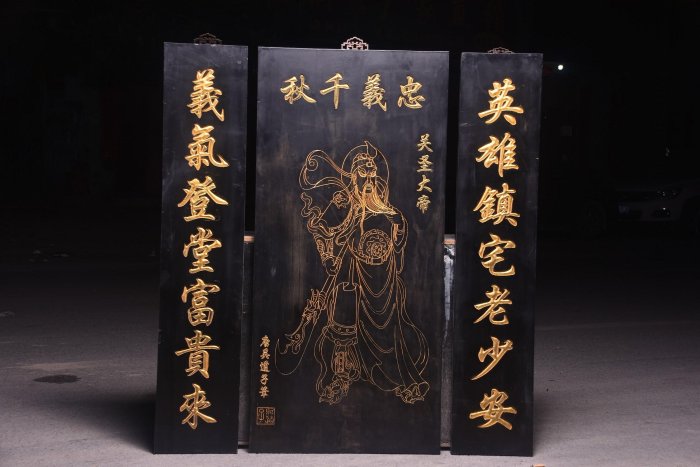 忠義千秋
英雄鎮宅老少安
義氣登堂富貴來
关圣大帝
唐吴道子筆